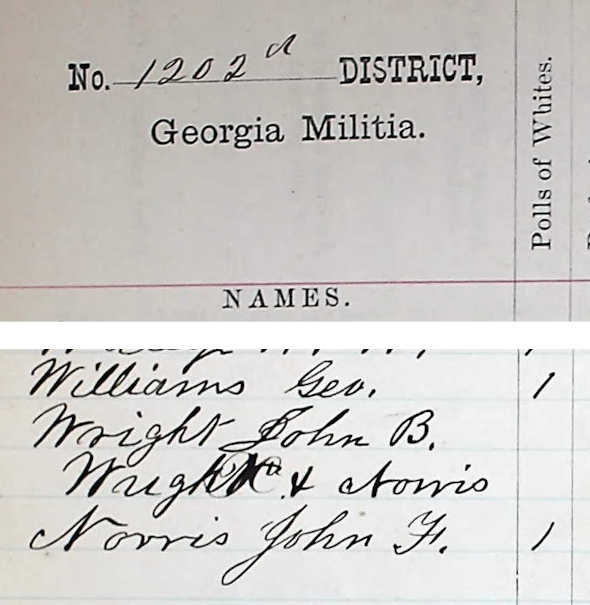 No. 1202d DISTRICT,
Georgia Militia.
Polls of Whites.
NAMES.
Williams Geo. 1
Wright John B.
Wright & Norris
Norris John F. 1